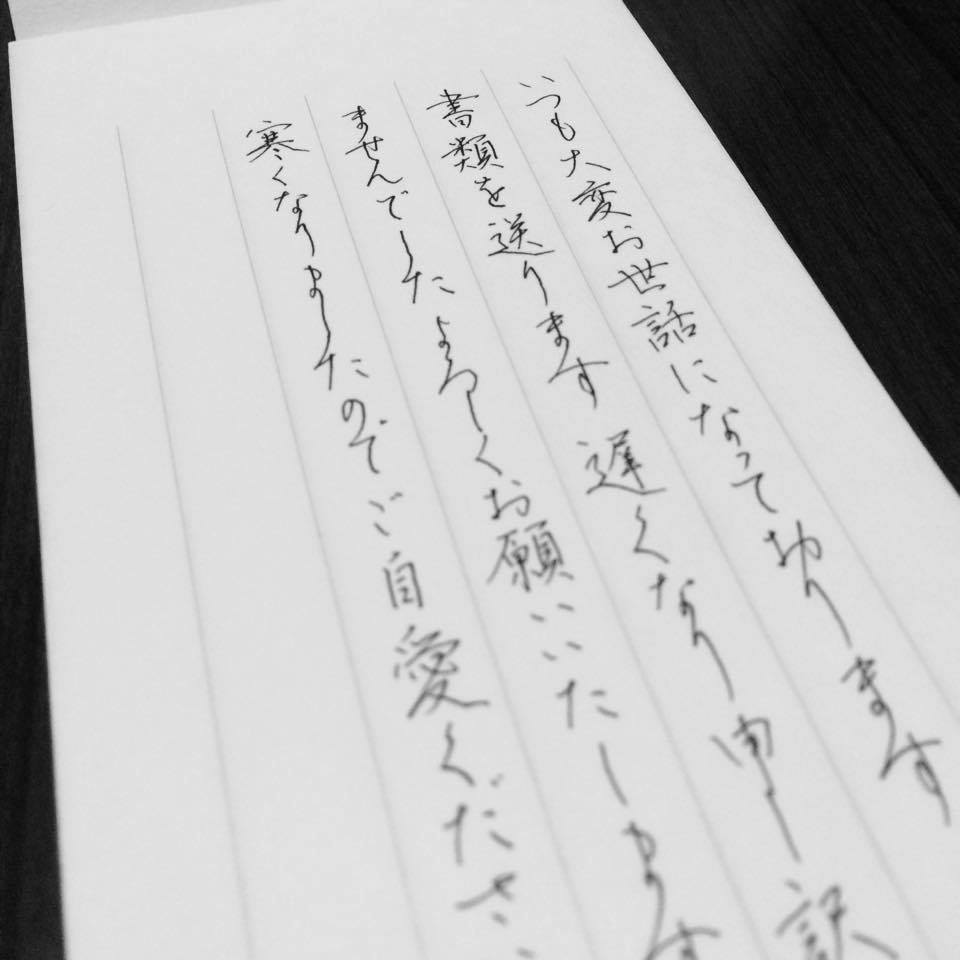 いつも大変お世話になっております
書類を送ります 遅くなり申し訳
ませんでした よろしくお願いいたします
寒くなりましたのでご自愛ください